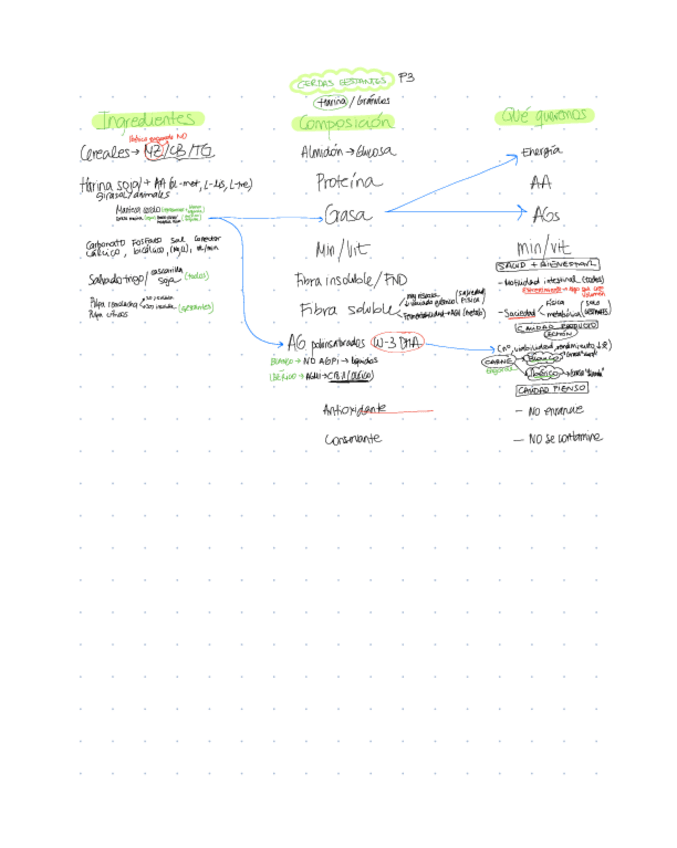 CERDAS GESTANTES P3
Harina / Gránulos
Ingredientes
Composición
Qué queremos
Cereales → MZ/CB/TG
Almidón → Glucosa
Energía
Harina soja/ + AA (DL-met, L-lis, L-tre)
girasol/animales
Proteína
AA
Manteca cerdo
Grasa
AGs
Carbonato Fosfato Sal Corrector
cálcico, bicálcico, (NaCl), vit/min
Min/Vit
min/vit
SALUD + BIENESTAR
Salvado trigo/ cascarilla soja (todos)
Fibra insoluble/FND
- Motilidad intestinal (todos)
Pulpa remolacha
Pulpa cítricos
(GESTANTES)
Fibra soluble
(saciedad física)
Fermentabilidad → AGV (metab)
- Saciedad física
metabólica
(solo GESTANTES)
CALIDAD PRODUCTO
LECHÓN
AG poliinsaturados W-3 DHA
(nº, viabilidad, rendimiento
BLANCO → NO AGPI → líquidos
IBÉRICO → AGMI → CB A (OLEICO)
CARNE
Blanco
Ibérico
CALIDAD PIENSO
Antioxidante
- NO enrancie
Conservante
- NO se contamine